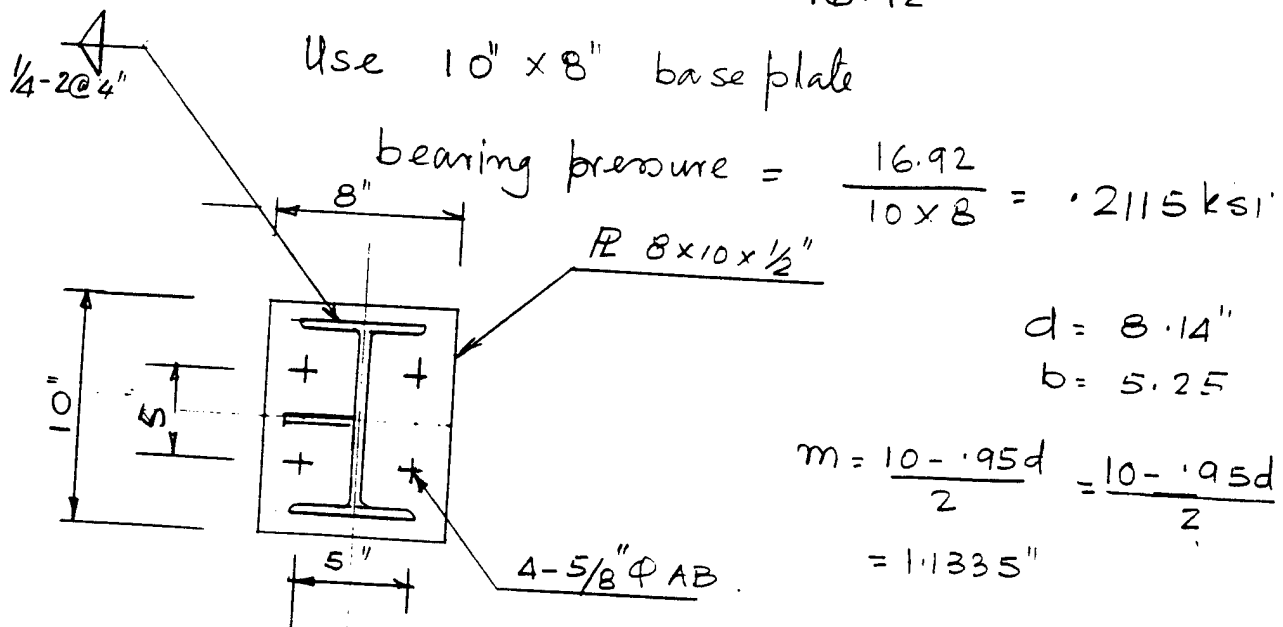 Use 10" x 8" base plate
1/4-2@4"
bearing pressure = 16.92 / 10 x 8 = .2115 ksi
8"
PL 8x10x1/2"
d = 8.14"
b = 5.25
10"
5"
m = 10 - .95d / 2 = 10 - .95d / 2
= 1.1335"
5"
4-5/8" Φ AB.